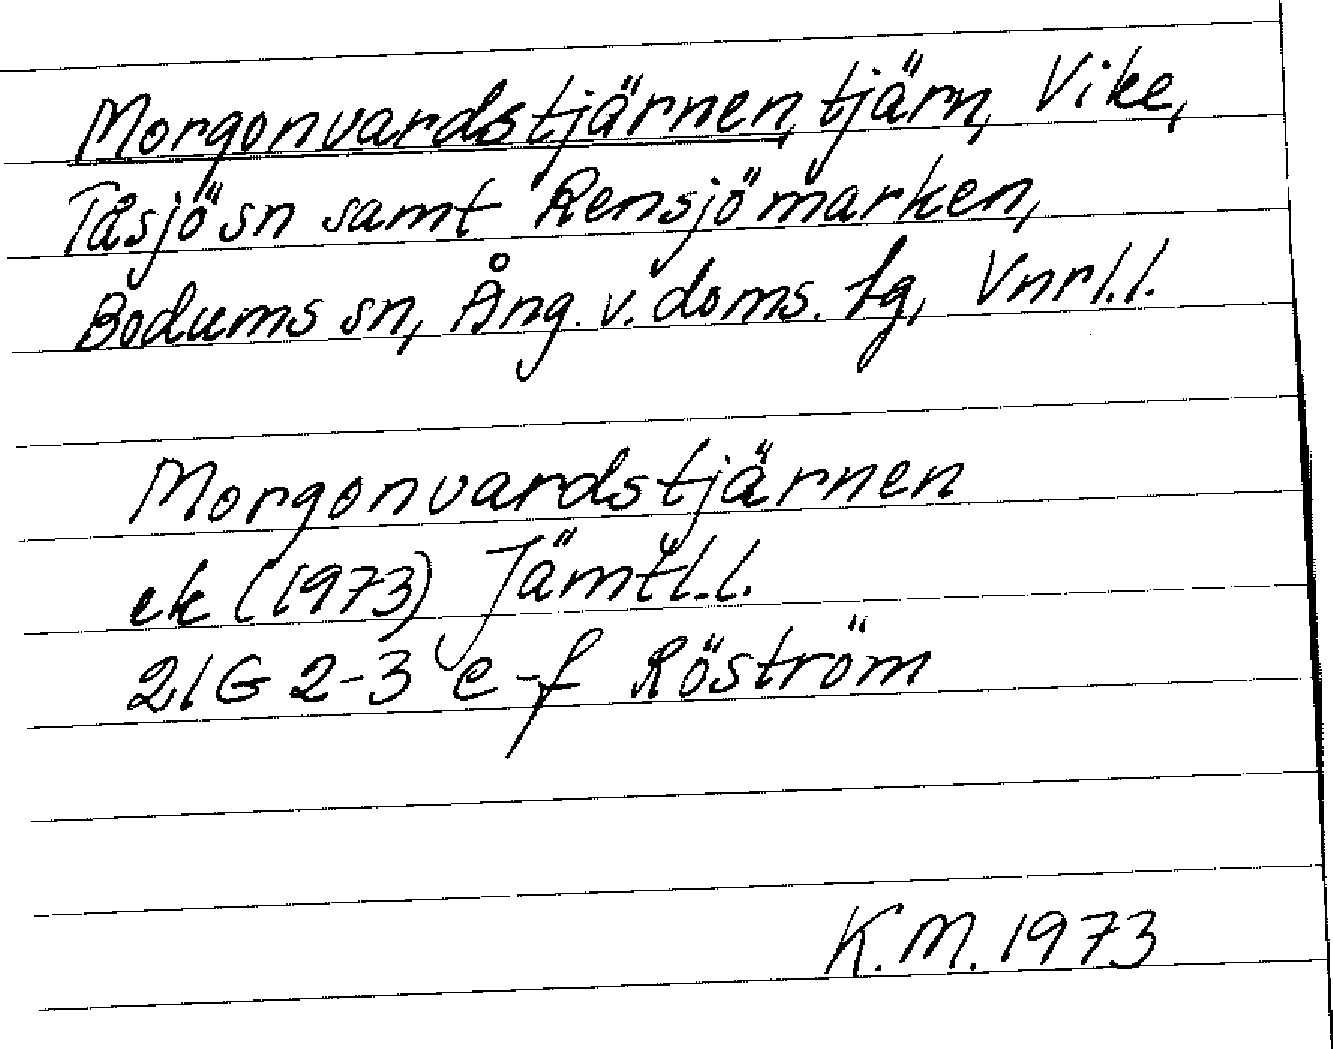 Morgonvardstjärnen, tjärn, Vike,
Tåsjö sn samt Rensjömarken,
Bodums sn, Ång. v. doms. tg, Vnrl.l.
Morgonvardstjärnen
ek (1973) Jämtl.l.
21G 2-3 e-f Röström
K.M. 1973